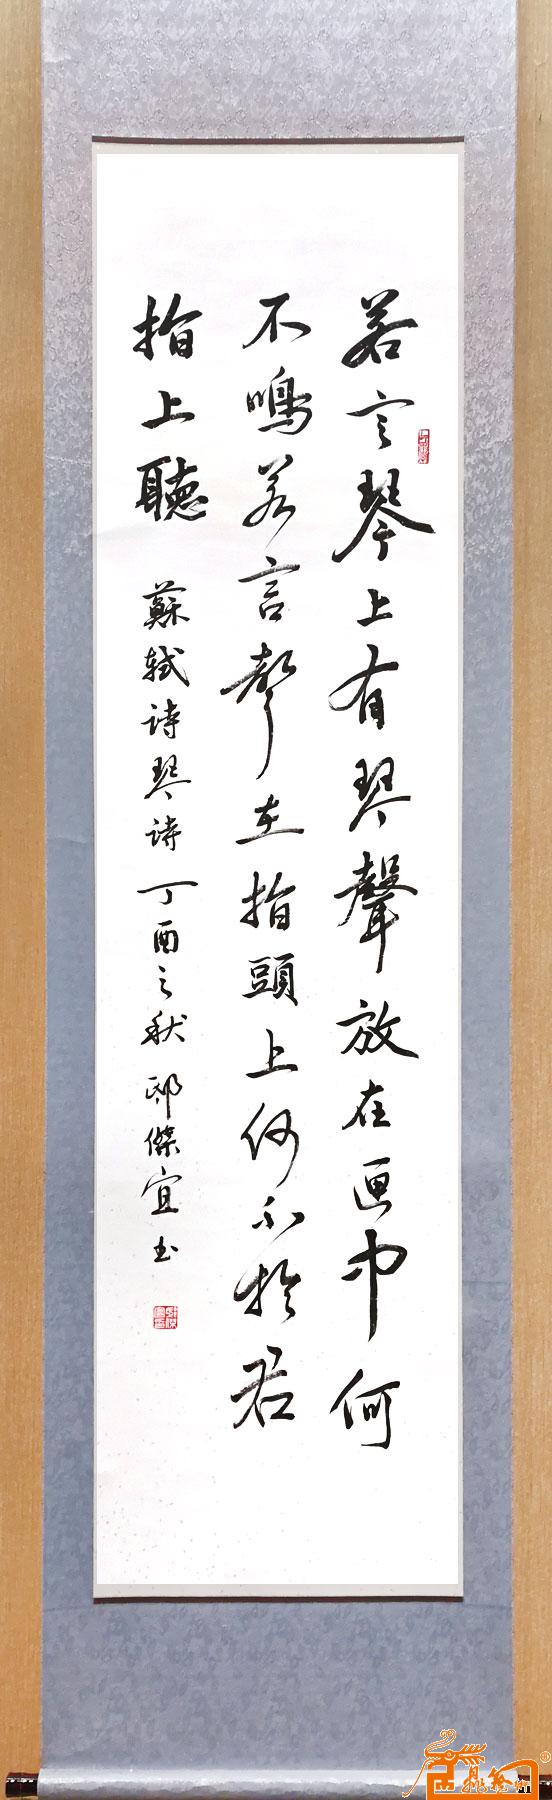 若言琴上有琴聲放在匣中何
不鳴若言聲在指頭上何不於君
指上聽
蘇軾诗琴诗丁酉之秋邸傑宜书